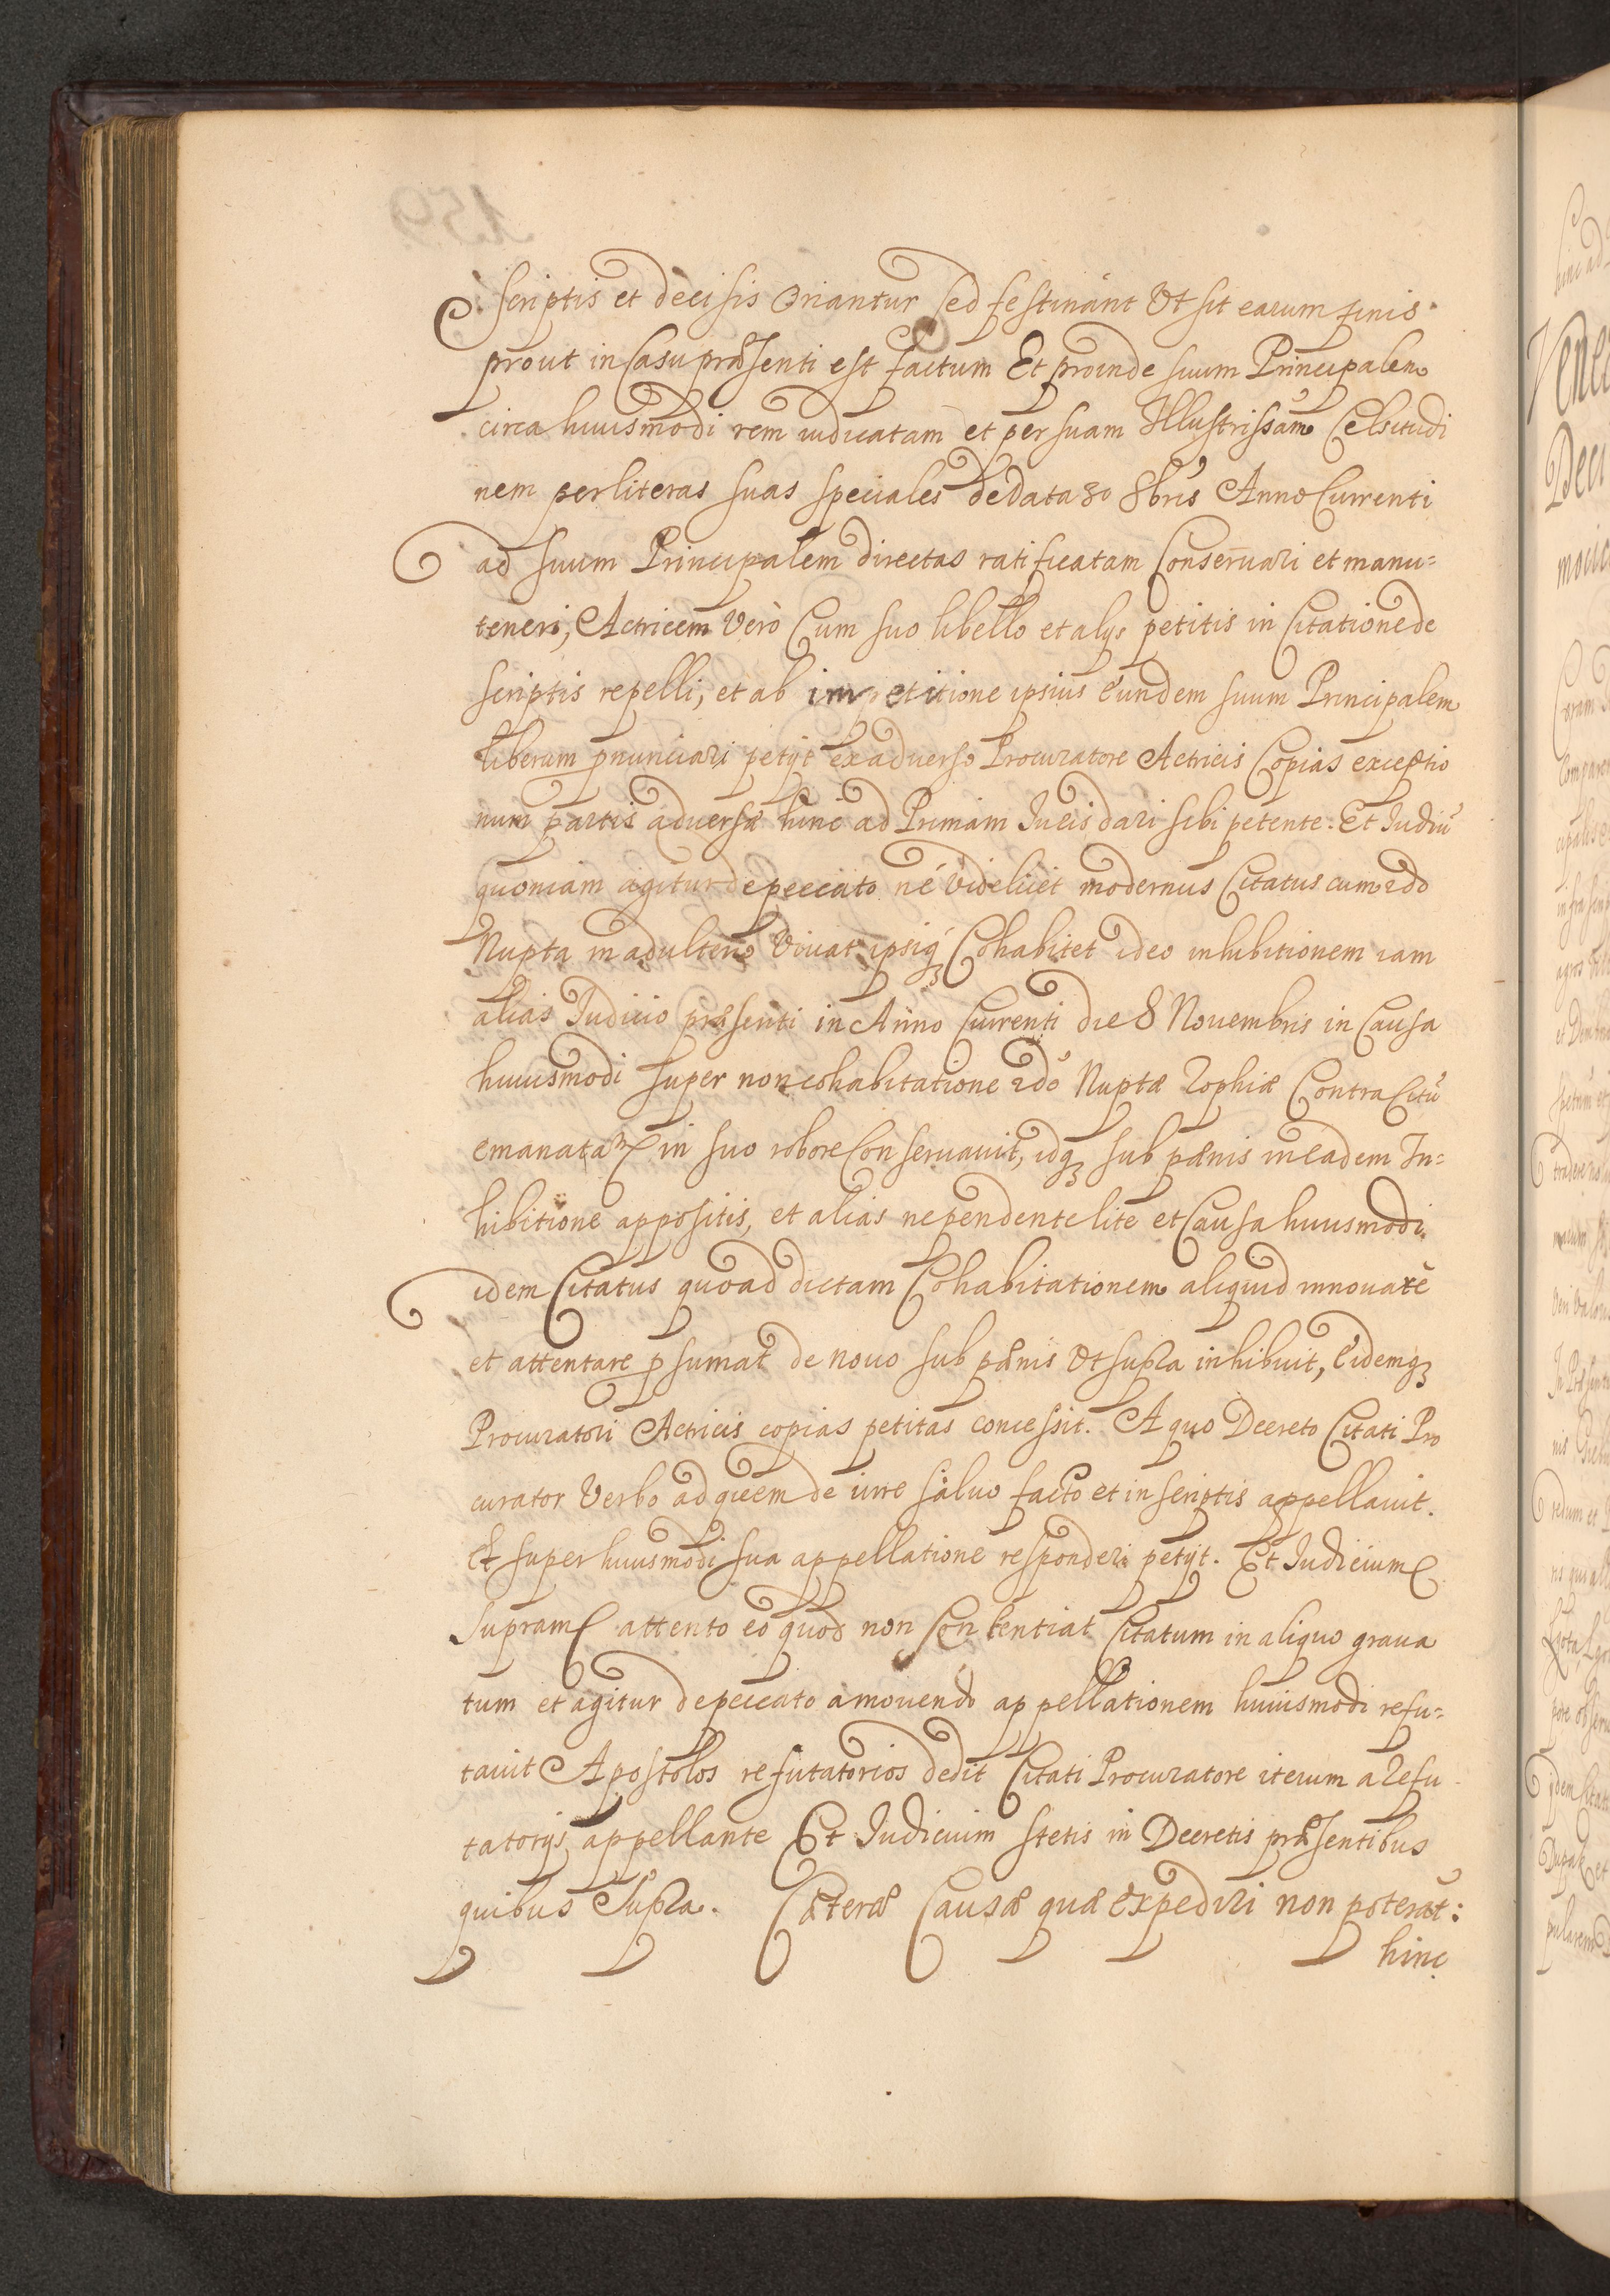 scriptis et decisis Oriantur sed festinant Ut sit earum finis
prout in Casu præsenti est factum Et proinde suum Principalem
circa huiusmodi rem iudicatam et per suam Illustrissam Celsitudi
nem per literas suas speciales de data 30 8bris Anno Currenti
ad suum Principalem directas ratificatam Conseruari et manu=
teneri, Actricem Verò Cum suo libello et alys petitis in Citatione de
scriptis repelli, et ab impetitione ipsius Eundem suum Principalem
liberum pnunciari petijt ex aduerso Procuratore Actricis Copias exceptio
num partis aduersæ hinc ad Primam Iucis dari sibi petente: Et Iudiu
quoniam agitur de peccato né Videlicet modernus Citatus cum 2do
Nupta in adulterio Viuat ipsiq3 Cohabitet ideo inhibitionem iam
alias Iudicio præsenti in Anno Currenti die 8 Nouembris in Causa
huiusmodi super non cohabitatione 2do Nuptæ Zophiæ Contra Citū
emanatam in suo robore Conseruauit, idq3 sub pænis in eadem In=
hibitione appositis, et alias ne pendente lite et Causa huiusmodi
idem Citatus quoad dictam Cohabitationem aliquid innouare
et attentare psumat de nouo sub pænis Ut supra inhibuit, Eidemq3
Procuratori Actricis copias petitas concessit. A quo Decreto Citati Pro
curator Verbo ad quem de iure saluo facto et in scriptis appellauit.
Et super huiusmodi sua appellatione responderi petijt. Et Iudicium
Supram attento eo quod non Contentiat Citatum in aliquo graua
tum et agitur de peccato amouendo appellationem huiusmodi refu=
tauit Apostolos refutatorios dedit Citati Procuratore iterum a Refu
tatorijs appellante Et Iudicium stetis in Decretis præsentibus
quibus Supra. Cæteræ Causæ quæ Expediri non poterāt:
hinc